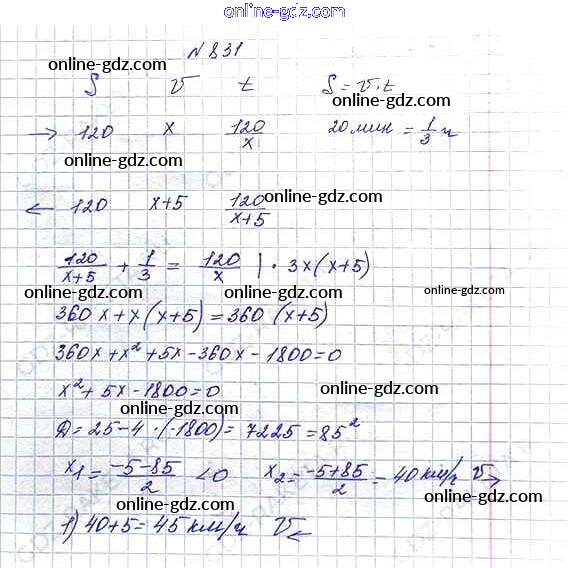 online-gdz.com
№ 831
S v t S = v · t
online-gdz.com online-gdz.com
→ 120 x 120/x 20 мин = 1/3 ч
online-gdz.com
← 120 x+5 120/(x+5)
online-gdz.com
120/(x+5) + 1/3 = 120/x | · 3x(x+5)
online-gdz.com online-gdz.com online-gdz.com
360x + x(x+5) = 360(x+5)
360x + x² + 5x - 360x - 1800 = 0
x² + 5x - 1800 = 0
online-gdz.com
Д = 25 - 4 · (-1800) = 7225 = 85²
online-gdz.com
x₁ = (-5-85)/2 < 0 x₂ = (-5+85)/2 = 40 км/ч v→
online-gdz.com online-gdz.com
1) 40 + 5 = 45 км/ч v←